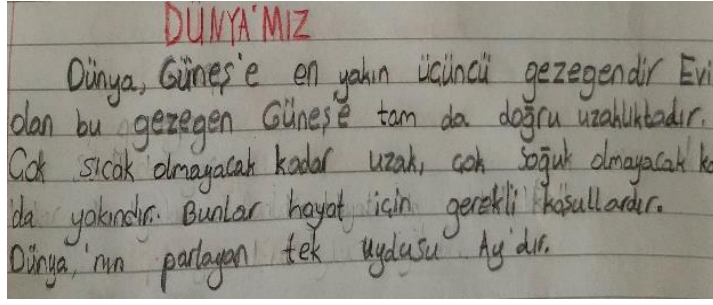 DÜNYA'MIZ
Dünya, Güneş'e en yakın üçüncü gezegendir Evi
olan bu gezegen Güneş'e tam da doğru uzaklıktadır.
Çok sıcak olmayacak kadar uzak, çok soğuk olmayacak ka
da yakındır. Bunlar hayat için gerekli koşullardır.
Dünya,'nın parlayan tek uydusu Ay'dır.